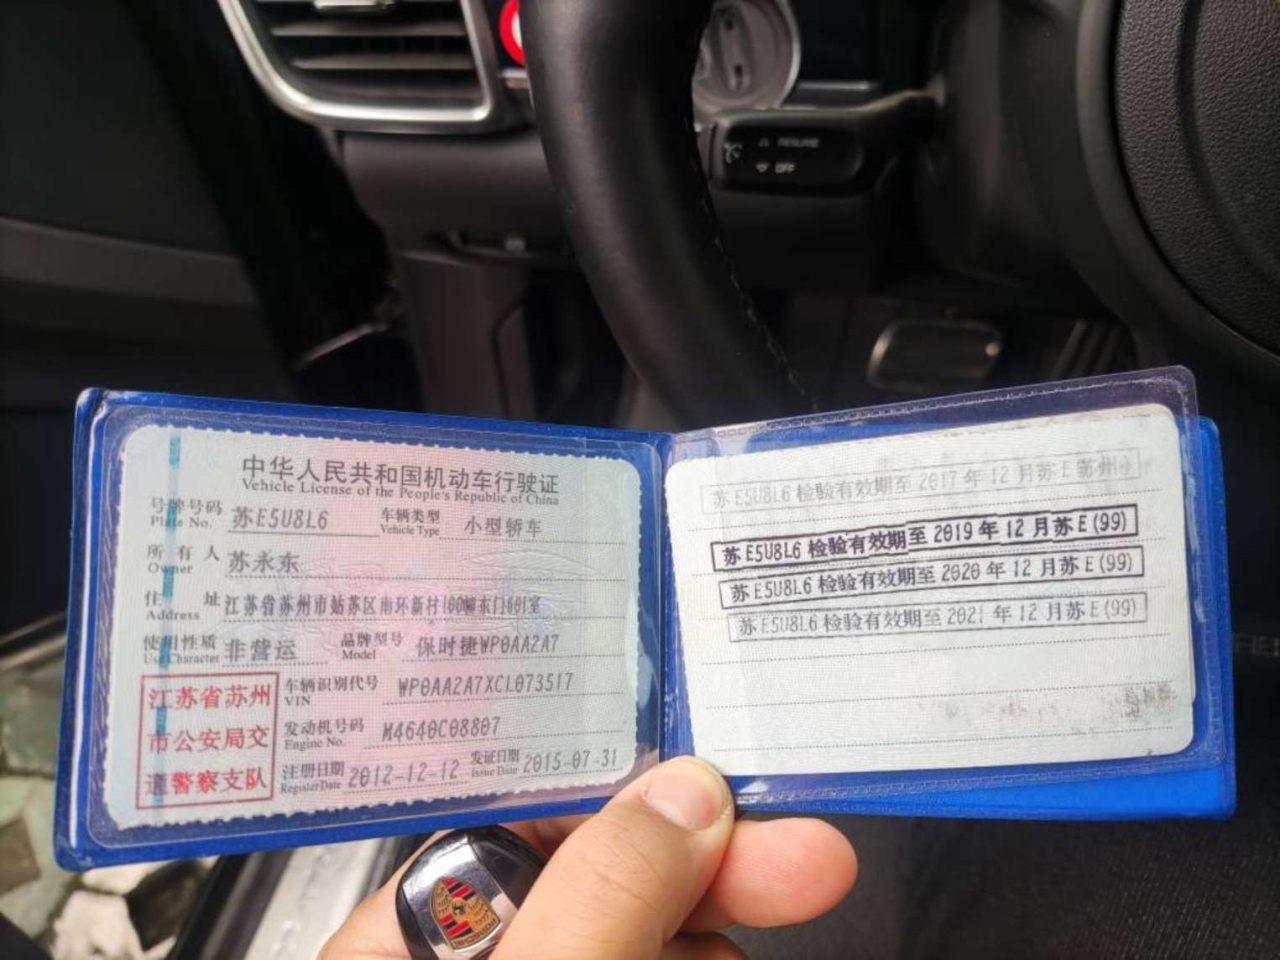 RESUME
OFF
中华人民共和国机动车行驶证
Vehicle License of the People's Republic of China
号牌号码 苏E5U8L6 车辆类型 小型轿车
Plate No. Vehicle Type
所有人 苏永东
Owner
住址 江苏省苏州市姑苏区南环新村100幢东门601室
Address
使用性质 非营运 品牌型号 保时捷WP0AA2A7
Use Character Model
江苏省苏州
市公安局交
通警察支队
车辆识别代号 WP0AA2A7XCL073517
VIN
发动机号码 M4640C08807
Engine No.
注册日期 2012-12-12 发证日期 2015-07-31
Register Date Issue Date
苏E5U8L6 检验有效期至 2017 年 12 月苏 E 苏州
苏E5U8L6 检验有效期至 2019 年 12 月苏 E (99)
苏E5U8L6 检验有效期至 2020 年 12 月苏 E (99)
苏E5U8L6 检验有效期至 2021 年 12 月苏 E (99)